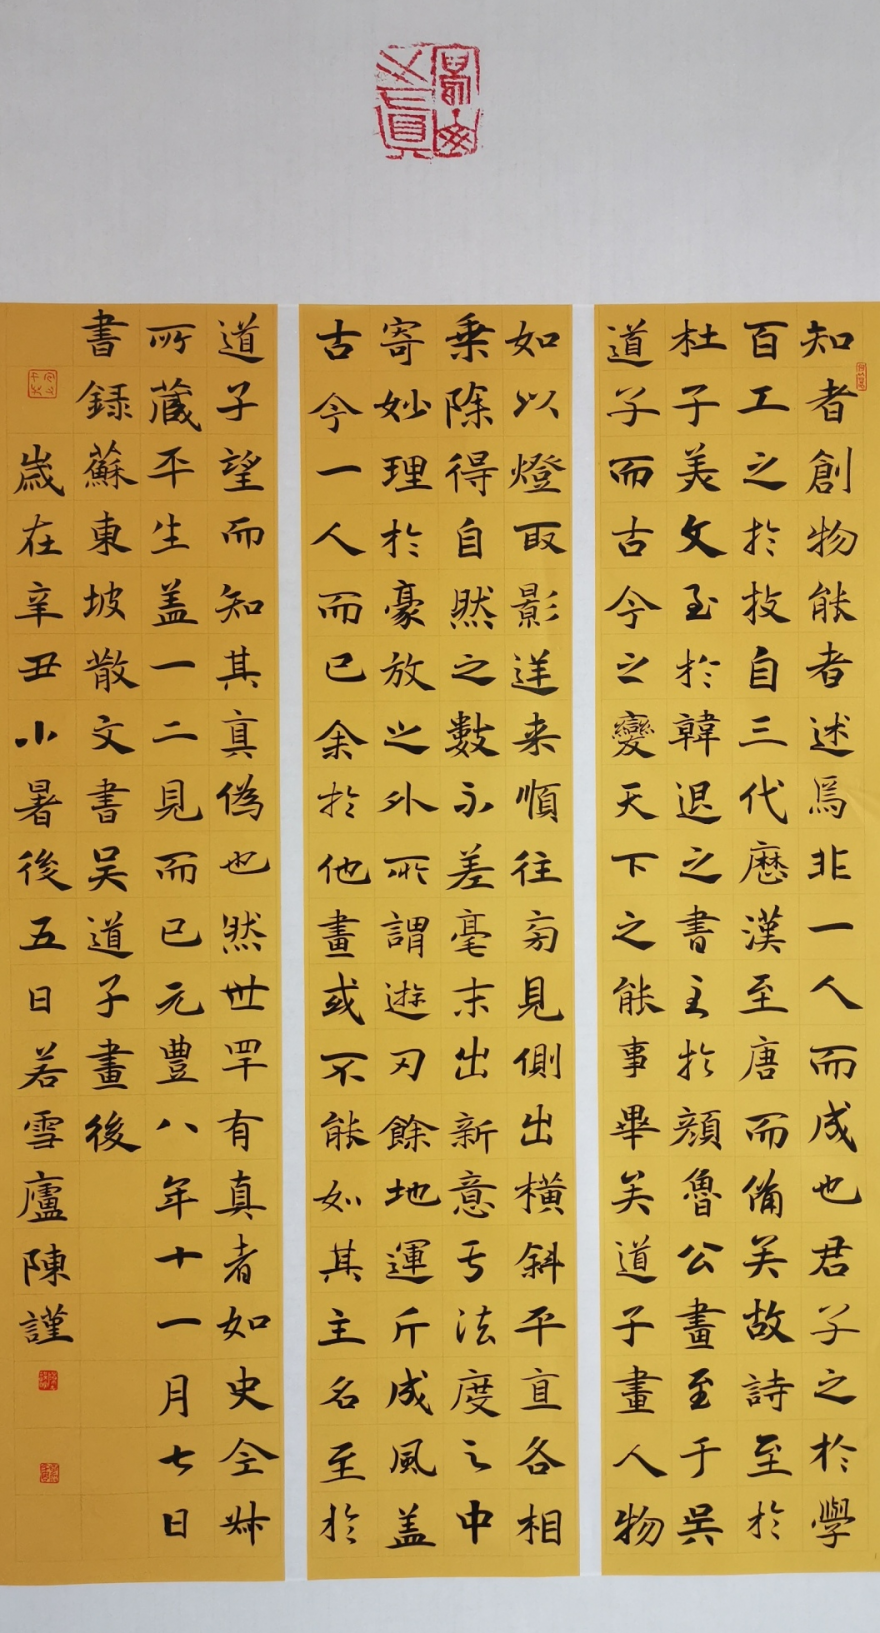 知者創物能者述焉非一人而成也君子之於學
百工之於技自三代歷漢至唐而備矣故詩至於
杜子美文至於韓退之書至於顔魯公畫至于吳
道子而古今之變天下之能事畢矣道子畫人物
如以燈取影逆来順往旁見側出橫斜平直各相
乗除得自然之數不差毫末出新意于法度之中
寄妙理於豪放之外所謂遊刃餘地運斤成風盖
古今一人而已余於他畫或不能如其主名至於
道子望而知其真偽也然世罕有真者如史全叔
所藏平生盖一二見而已元豐八年十一月七日
書録蘇東坡散文書吳道子畫後
歲在辛丑小暑後五日若雪廬陳謹